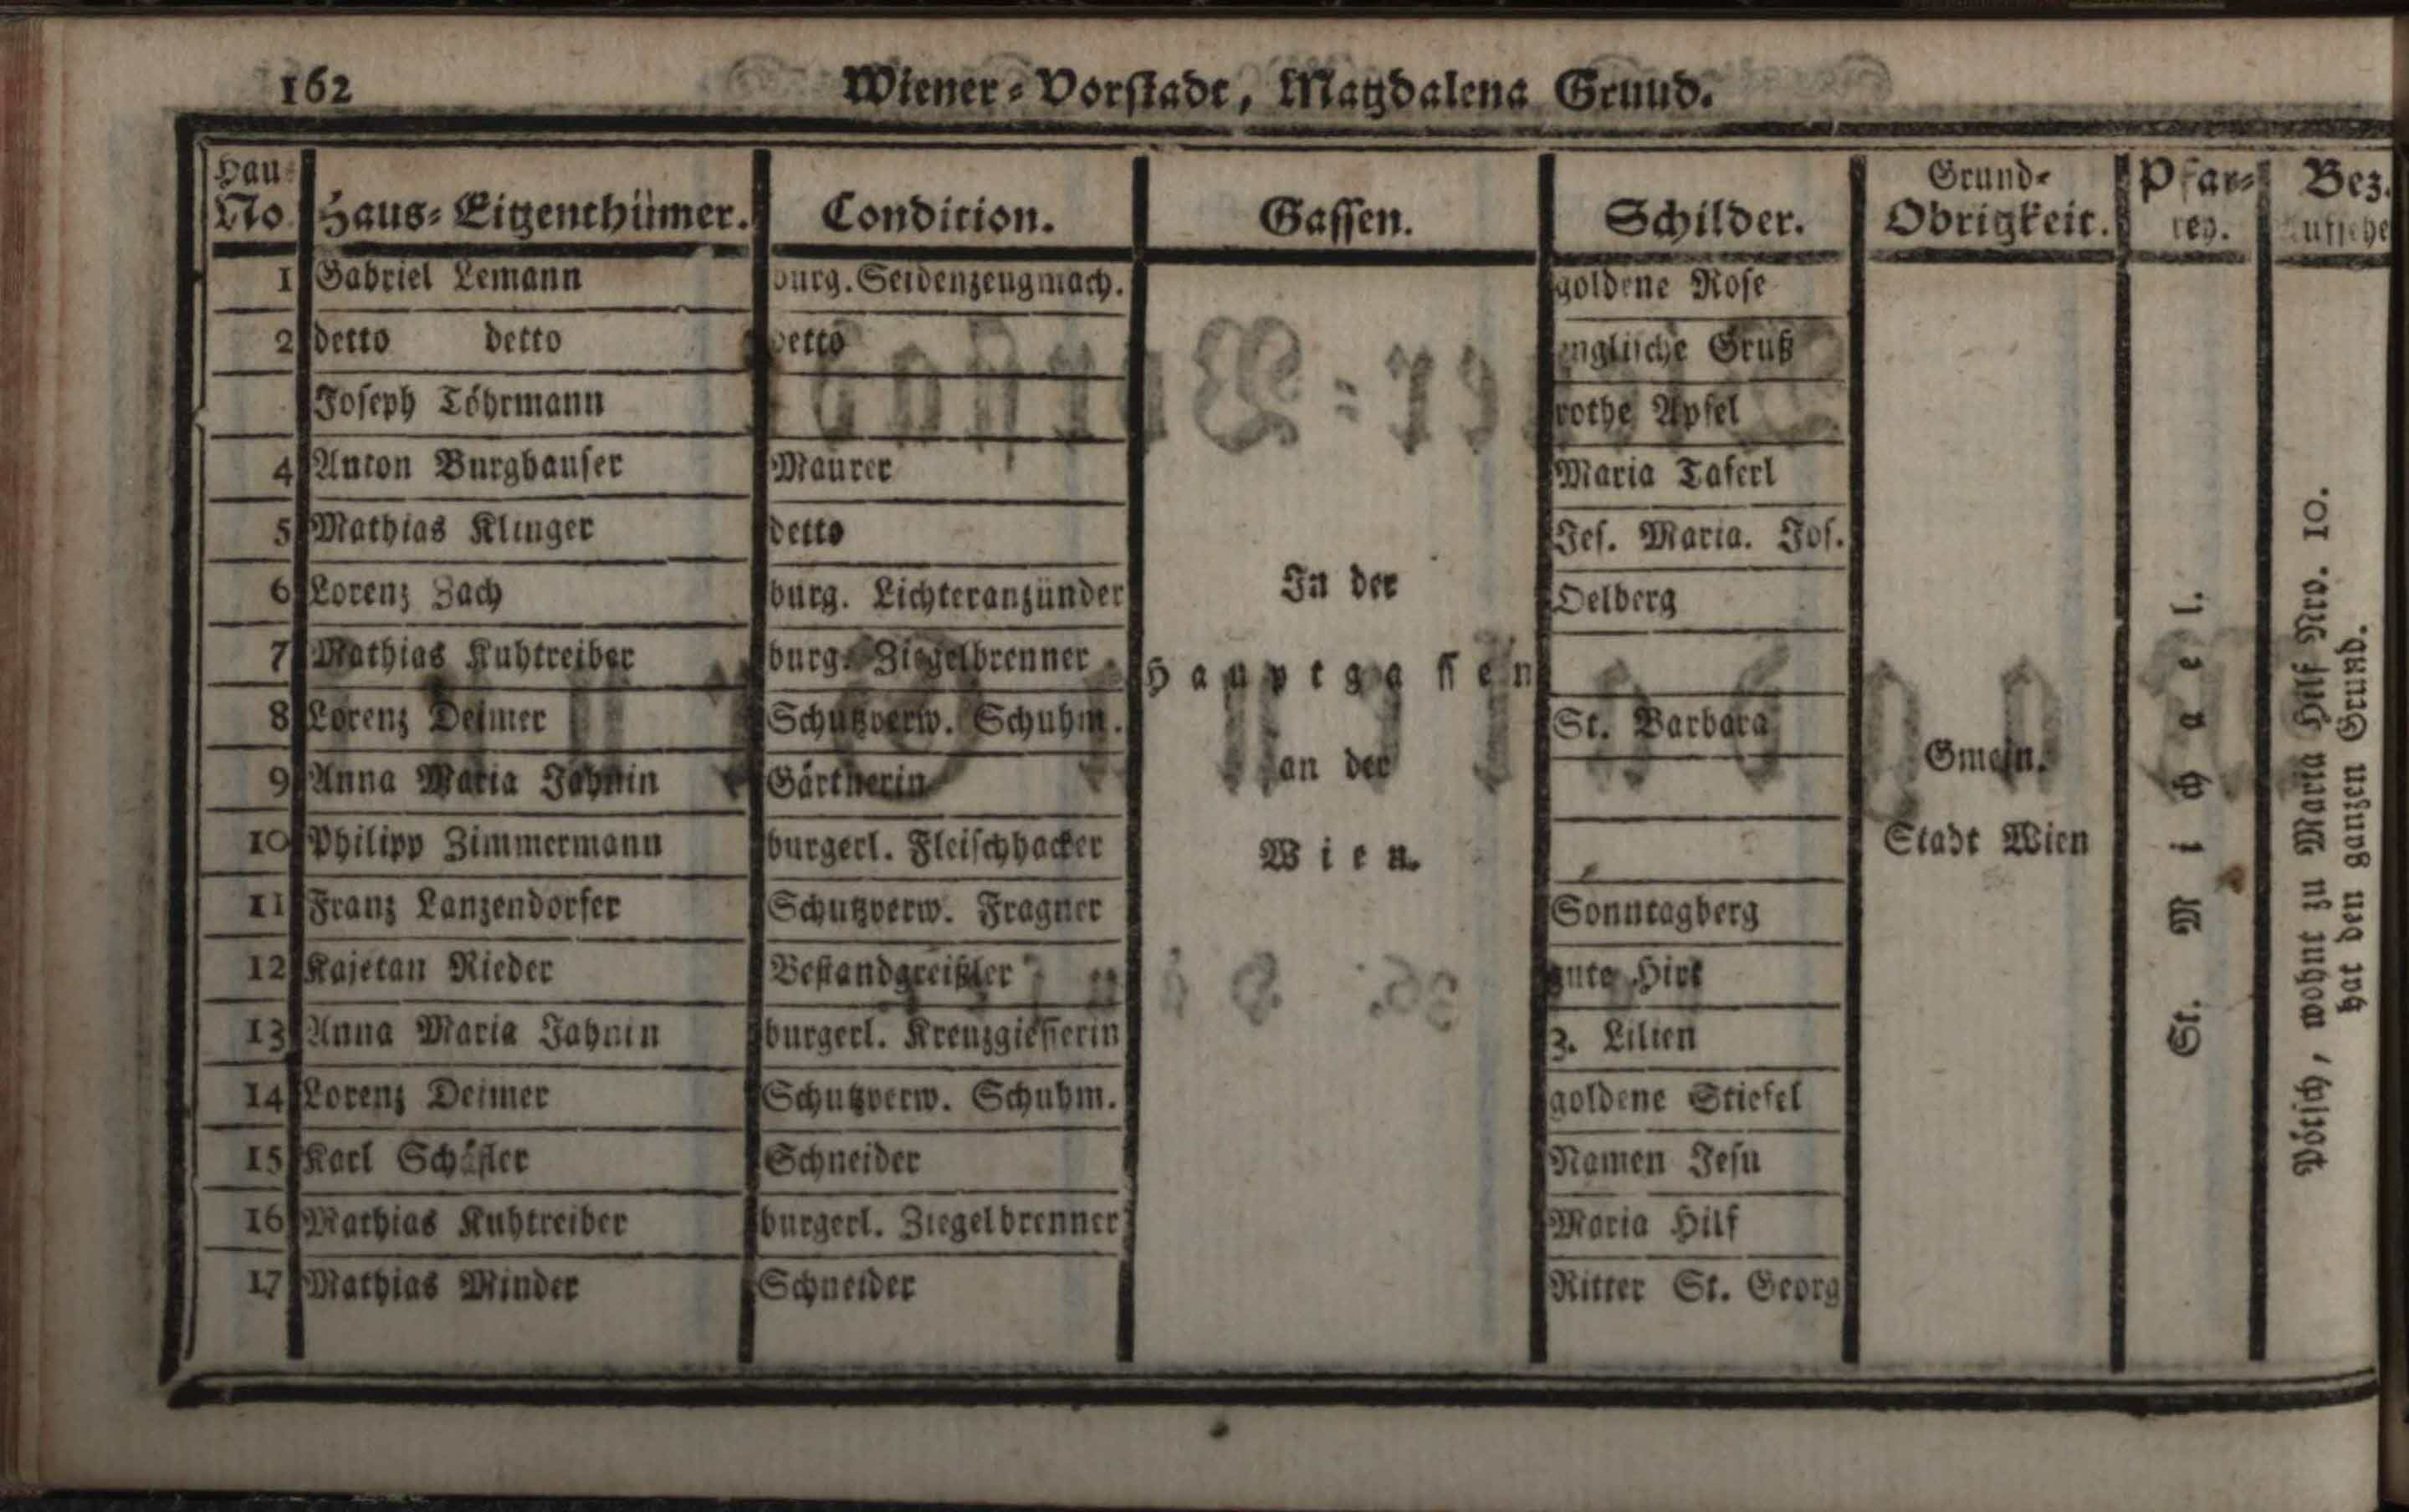 162
Wiener-Vorstadt, Magdalena Grund.
Hau- No. Haus-Eigenthümer. Condition. Gassen. Schilder. Grund-Obrigkeit. Pfar-rey. Bez.
1 Gabriel Lemann burg. Seidenzeugmach. goldene Rose
2 detto detto detto englische Gruß
Joseph Töhrmann rothe Apfel
4 Anton Burghauser Maurer Maria Taferl
5 Mathias Klinger detto Jes. Maria. Jos.
6 Lorenz Zach burg. Lichteranzünder Oelberg
7 Mathias Kuhtreiber burg. Ziegelbrenner
8 Lorenz Deimer Schutzverw. Schuhm. St. Barbara
9 Anna Maria Jahnin Gärtnerin
10 Philipp Zimmermann burgerl. Fleischhacker
11 Franz Lanzendorfer Schutzverw. Fragner Sonntagberg
12 Kajetan Rieder Bestandgreißler gute Hirt
13 Anna Maria Jahnin burgerl. Kreuzgiesserin 3. Lilien
14 Lorenz Deimer Schutzverw. Schuhm. goldene Stiefel
15 Karl Schäfler Schneider Namen Jesu
16 Mathias Kuhtreiber burgerl. Ziegelbrenner Maria Hilf
17 Mathias Minder Schneider Ritter St. Georg
In der
Hauptgassen
an der
Wien.
Gmein.
Stadt Wien
St. Michael.
Pötsch, wohnt zu Maria Hilf Nro. 10.
hat den ganzen Grund.